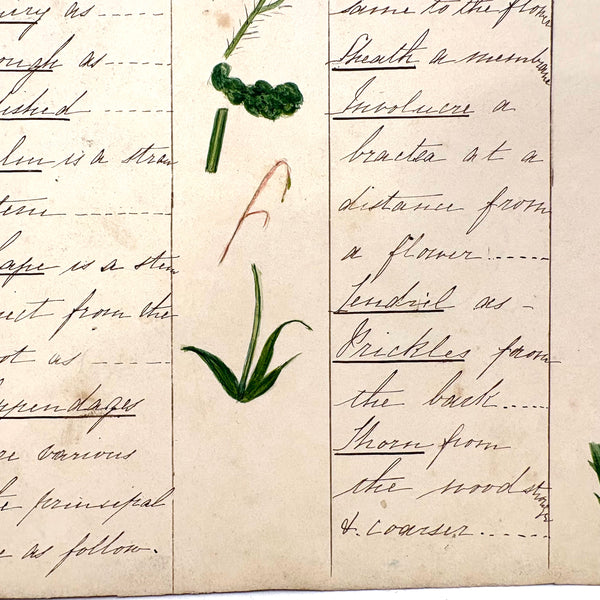 ery as
ough as
ished
lm is a straw
tem
cape is a stem
rect from the
ot as
ppendages
re various
he principal
e as follow.
same to the flower
Sheath a membrane
Involucre a
bractea at a
distance from
a flower
Tendril as
Prickles from
the bark
Thorn from
the wood stronger
& coarser